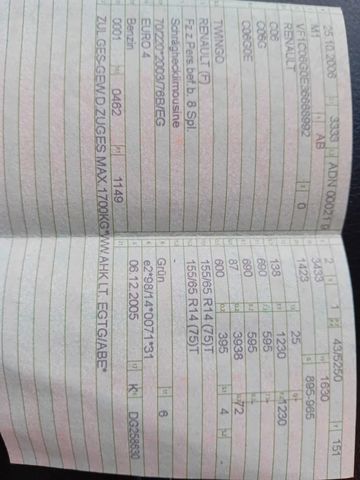 25.10.2006 3333 ADN 00021 0
M1 AB
VF1C06G0E36688992 0
RENAULT
C06
C06G
C06G0E
TWINGO
RENAULT (F)
Fz z.Pers.bef.b. 8 Spl.
Schräghecklimousine
70/220*2003/76B/EG
EURO 4
Benzin
0001 0462 1149
2 1 43/5250 151
3433 1630
1423 895-965
25
138 1230 1230
690 595
690 595
87 3938 72
600 395 4 -
155/65 R14 (75)T
155/65 R14 (75)T
-
-
Grün 6
e2*98/14*0071*31
06.12.2005 K DG258630
ZUL.GES-GEW D ZUGES MAX.1700KG*WW AHK LT. EGTG/ABE*